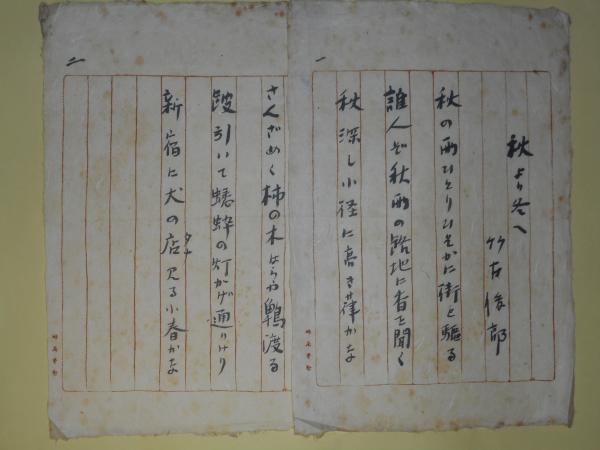 一
秋より冬へ
竹 俊郎
秋の雨ひとりひそかに街を驅る
誰人ぞ秋雨の路地に香を聞く
秋深し小径に高き葎かな
二
さんざめく柿の木 鵯渡る
跛引いて蟋蟀の灯かげ通りけり
新宿に犬の店見る小春かな
タナ